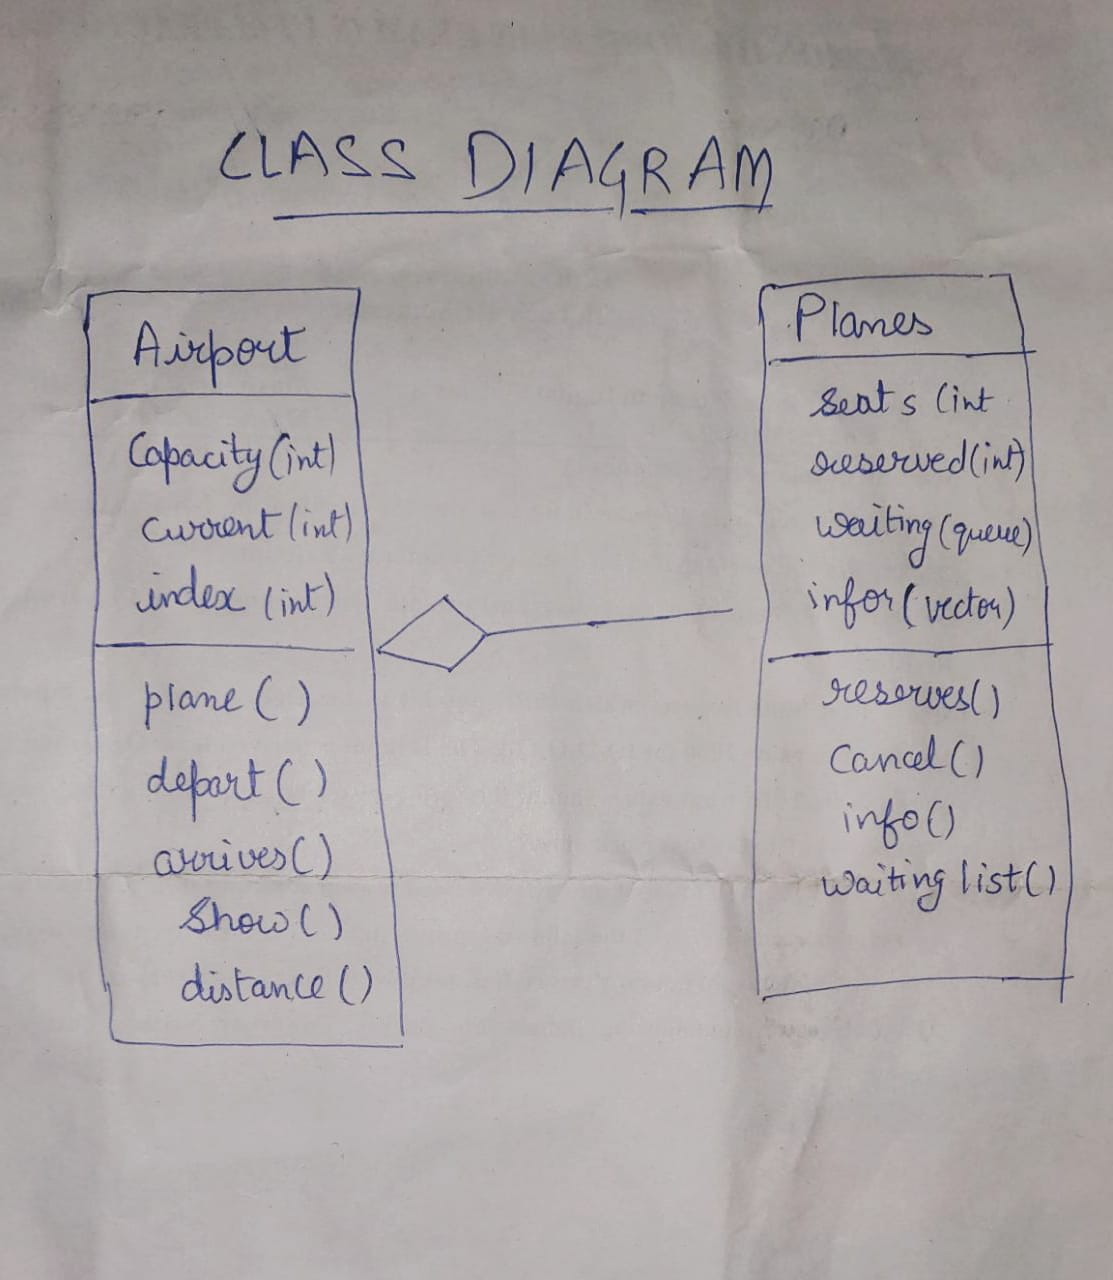 CLASS DIAGRAM
Airport
Capacity (int)
Current (int)
index (int)
plane ( )
depart ( )
arrives( )
Show ( )
distance ( )
Planes
Seats (int
reserved (int)
waiting (queue)
infor (vector)
reserves()
Cancel ()
info ()
waiting list ()